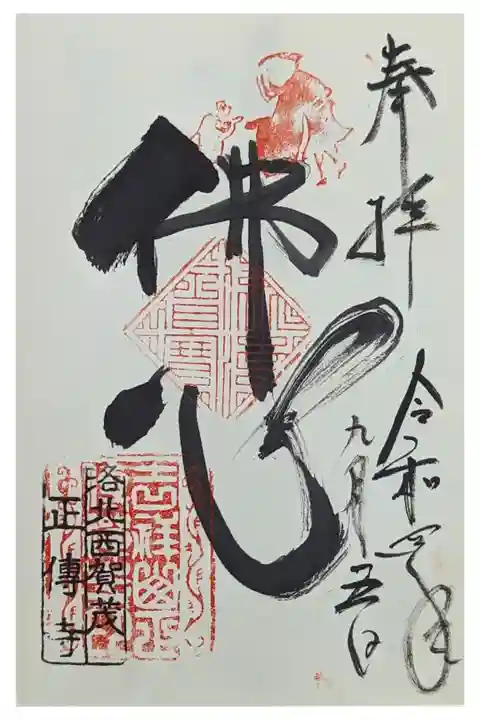 奉拝
令和四年
九月五日
佛心
洛北西賀茂
正傳寺